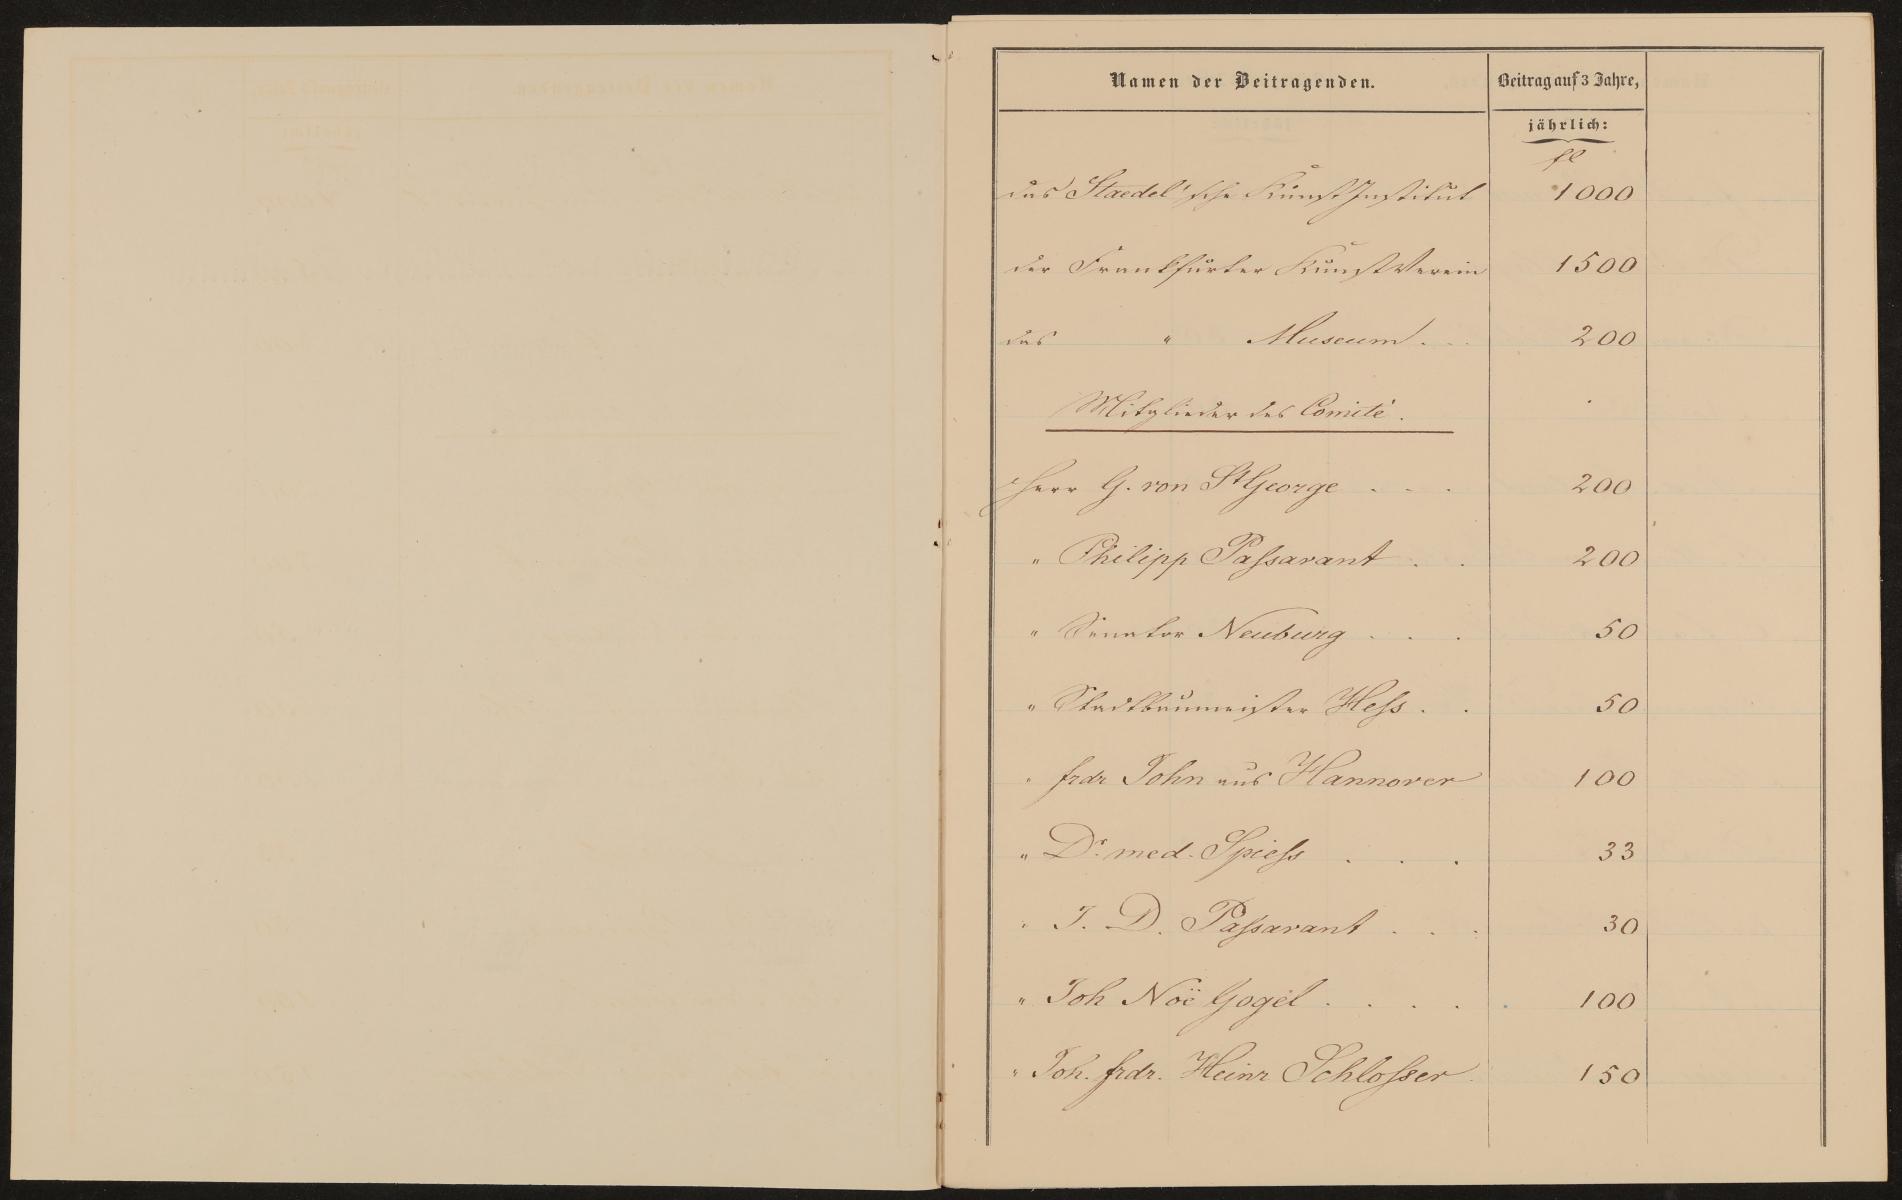 Namen der Beitragenden.
Beitrag auf 3 Jahre,
jährlich:
fl
das Staedel'sche Kunst Institut 1000
der Frankfurter Kunst Verein 1500
das " Museum . . . 200
Mitglieder des Comité.
Herr G. von St George . . . 200
" Philipp Passavant . . 200
" Senator Neuburg . . . 50
" Stadtbaumeister Hess . . 50
" frdr John aus Hannover 100
" Dr. med. Spiess . . . 33
" J. D. Passavant . . . 30
" Joh Noë Gogel . . . . 100
" Joh. frdr. Heinr Schlosser 150